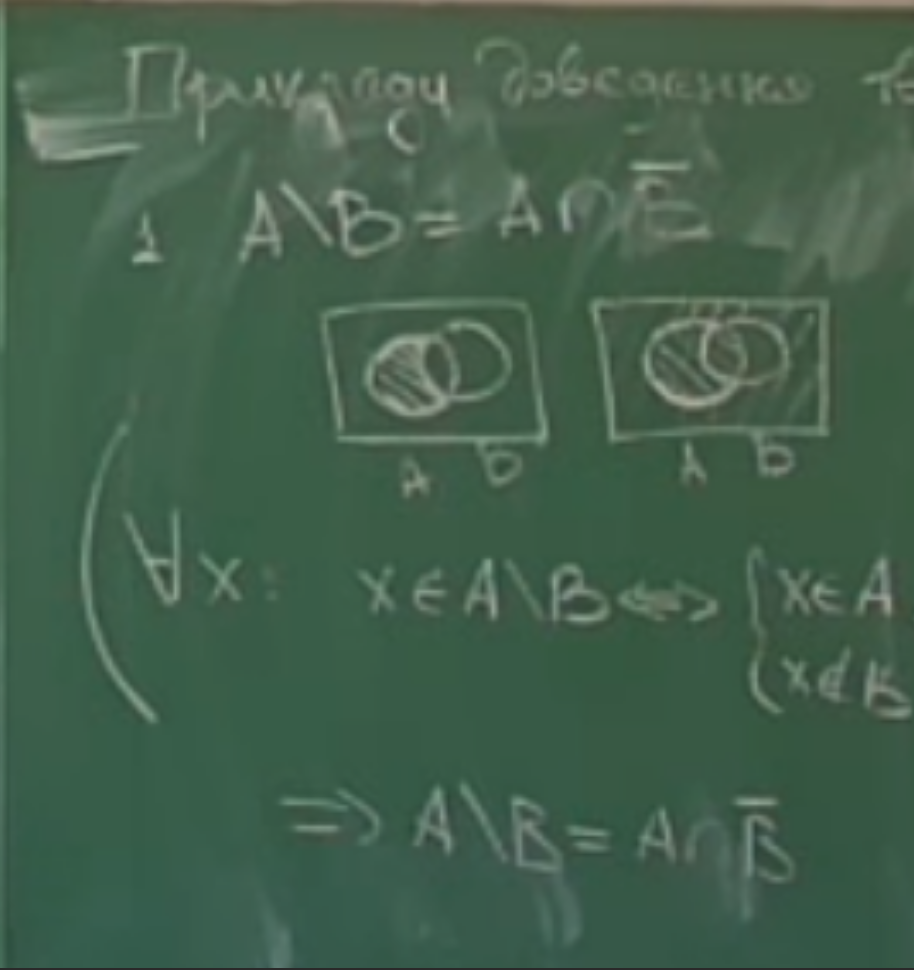 Приклади доведення
1 A\B = A∩B̅
A B A B
∀x: x∈A\B⇔ {x∈A
{x∉B
⇒ A\B = A∩B̅